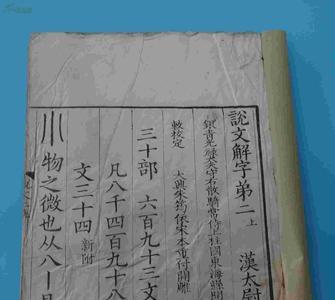 說文解字弟二上
漢太尉
銀青光祿大夫守右散騎常侍上柱國東海縣開
敕校定
大興朱筠依宋本重付開雕
三十部 六百九十三文
凡八千四百九十八
文三十四 新附
川 物之微也从八丨見